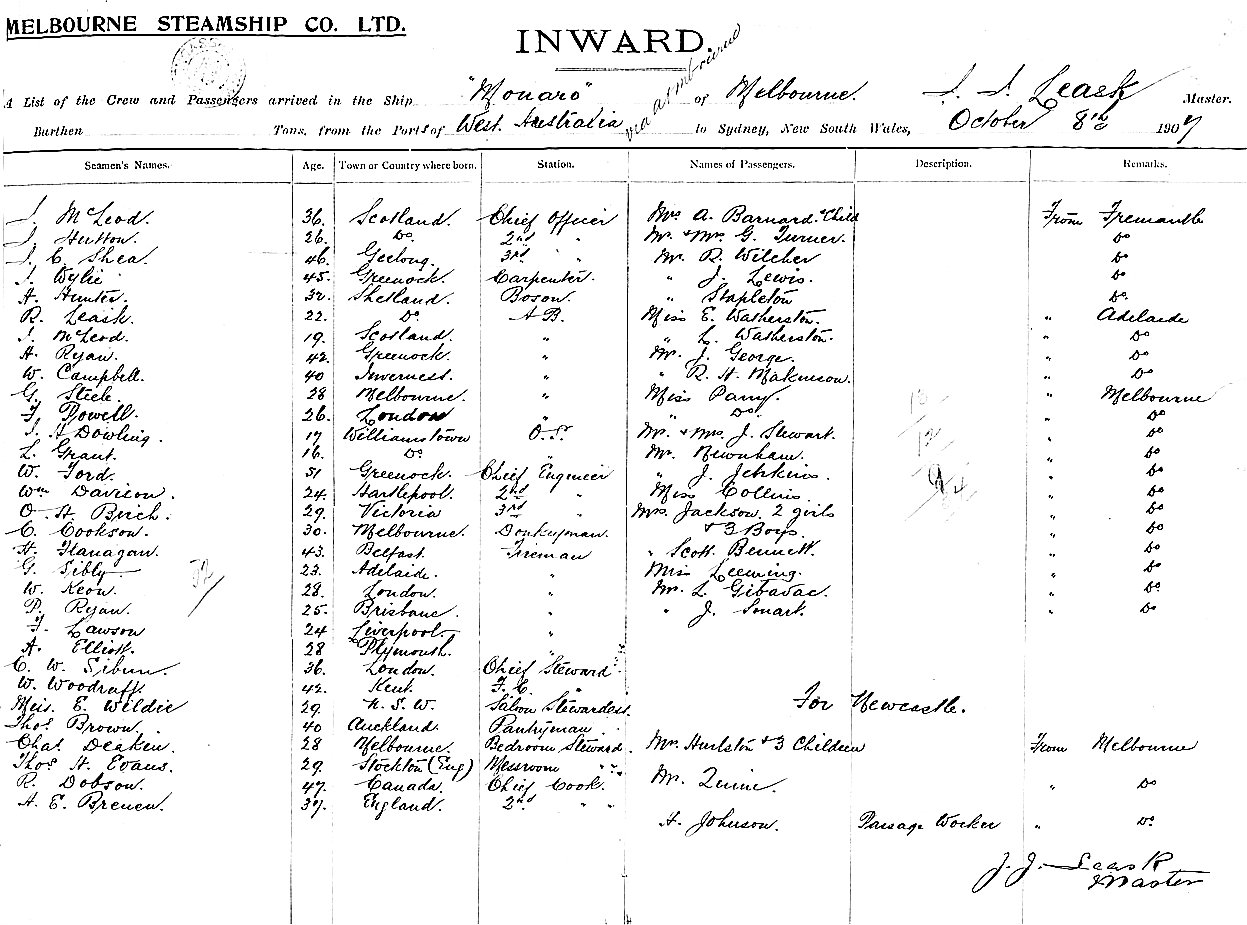 MELBOURNE STEAMSHIP CO. LTD.
INWARD.
A List of the Crew and Passengers arrived in the Ship "Monaro" of Melbourne. J. J. Leask Master.
Burthen Tons, from the Ports of West. Australia via to Sydney, New South Wales, October 8th 1907
Seamen's Names. Age. Town or Country where born. Station. Names of Passengers. Description. Remarks.
J. McLeod. 36. Scotland. Chief Officer Mrs A. Barnard & Child From Fremantle
J. Hutton. 26. Do 2nd " Mr. & Mrs G. Turner. Do
J. C. Shea. 46. Geelong. 3rd " Mr. R. Wilcher Do
J. Wylie 45. Greenock. Carpenter. " J. Lewis. Do
A. Hunter. 32. Shetland. Boson. " Stapleton Do
R. Leask. 22. Do A B. Miss E. Watherston. " Adelaide
J. McLeod. 19. Scotland. " " L. Watherston. " Do
A. Ryan. 42. Greenock. " Mr. J. George. " Do
W. Campbell. 40 Inverness. " " R. H. Makinson. " Do
G. Steele. 28 Melbourne. " Miss Parry. " Melbourne
F. Powell. 26. London " " Do. " Do
J. A Dowling. 17 Williamstown O.S. Mr. & Mrs. J. Stewart. " Do
L. Grant. 16. Do " Mr. Newnham. " Do
W. Ford. 51 Greenock. Chief Engineer " J. Jebkins. " Do
Wm Davison. 24. Hartlepool. 2nd " Miss Collins. " Do
O. H. Birch. 29. Victoria 3rd " Mrs. Jackson. 2 girls " Do
C. Cookson. 30. Melbourne. Donkeyman. & 3 Boys. " Do
H. Flanagan. 43. Belfast. Fireman " Scott Bennett. " Do
G. Sibly 23. Adelaide. " Miss Leeming. " Do
W. Keon. 28. London. " Mr. L. Gibadac. " Do
P. Ryan. 25. Brisbane. " " J. Smart. " Do
F. Lawson 24 Liverpool. "
A. Elliott. 28 Plymouth. "
C. W. Sibun. 36. London. Chief Steward
W. Woodruff. 42. Kent. F. C. "
For Newcastle.
Miss. E. Wildie 29. N. S. W. Saloon Stewardess.
Thos Brown. 40 Auckland. Pantryman.
Chas. Deaken. 28 Melbourne. Bedroom Steward. Mrs. Hurlston & 3 Children From Melbourne
Thos H. Evans. 29. Stockton (Eng) Messroom "
R. Dobson. 47. Canada. Chief Cook. Mr. Quinn. " Do
A. E. Brenen. 37. England. 2nd "
A. Johnson. Passage Worker " Do.
J. J. Leask
Master